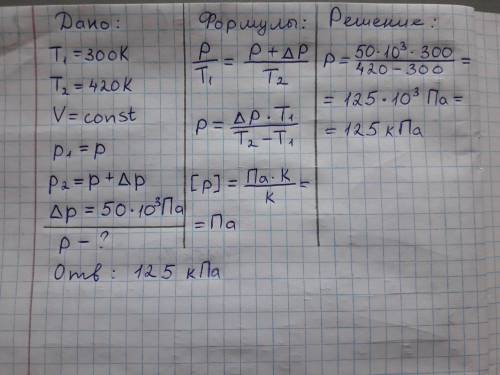 Дано:
T₁ = 300K
T₂ = 420K
V = const
p₁ = p
p₂ = p + Δp
Δp = 50·10³Па
p - ?
Отв: 125 кПа
Формулы:
p/T₁ = (p + Δp)/T₂
p = (Δp · T₁)/(T₂ - T₁)
[p] = (Па · К)/К =
= Па
Решение:
p = (50·10³ · 300)/(420 - 300) =
= 125·10³ Па =
= 125 кПа